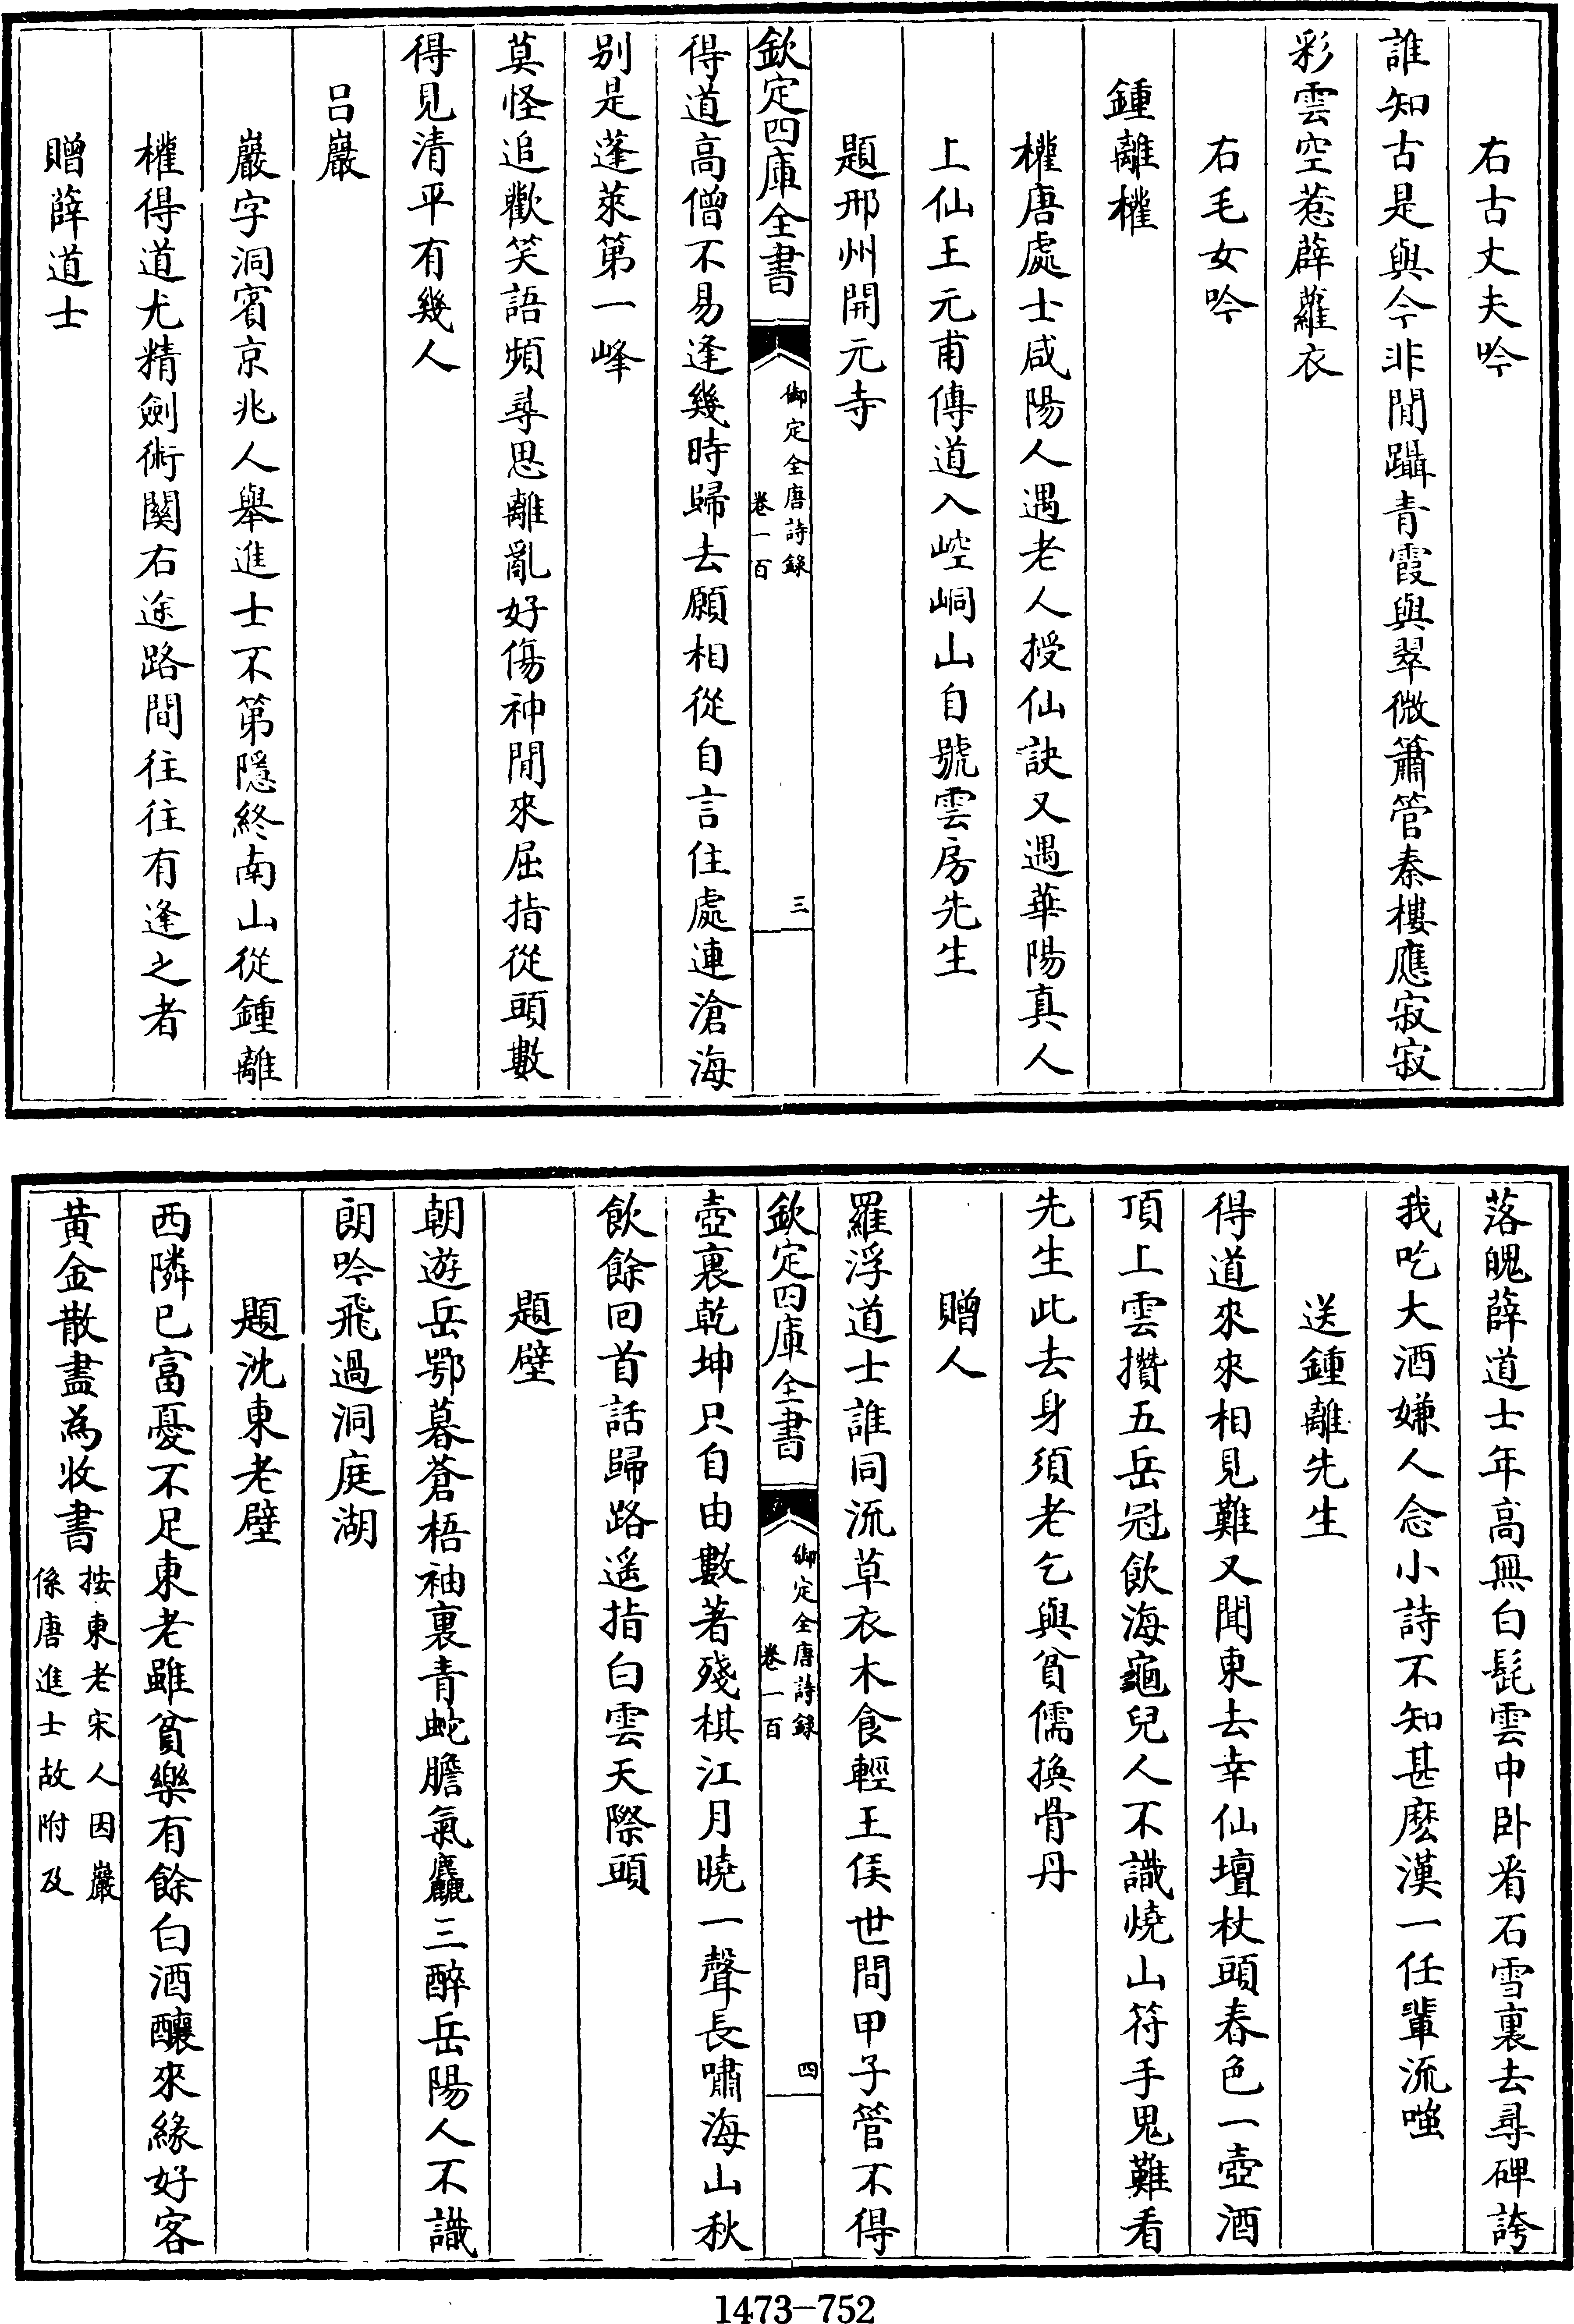 右古丈夫吟
誰知古是與今非閒躡青霞與翠微簫管秦樓應寂寂
彩雲空惹薜蘿衣
右毛女吟
鍾離權
權唐處士咸陽人遇老人授仙訣又遇華陽真人
上仙王元甫傳道入崆峒山自號雲房先生
題邢州開元寺
欽定四庫全書
御定全唐詩錄
卷一百
三
得道高僧不易逢幾時歸去願相從自言住處連滄海
别是蓬萊第一峰
莫怪追歡笑語頻尋思離亂好傷神閒來屈指從頭數
得見清平有幾人
吕巖
巖字洞賓京兆人舉進士不第隱終南山從鍾離
權得道尤精劍術關右途路間往往有逢之者
贈薛道士
落魄薛道士年高無白髭雲中卧看石雪裏去尋碑誇
我吃大酒嫌人念小詩不知甚麽漢一任輩流嗤
送鍾離先生
得道來來相見難又聞東去幸仙壇杖頭春色一壺酒
頂上雲攢五岳冠飲海龜兒人不識燒山符手鬼難看
先生此去身須老乞與貧儒換骨丹
贈人
羅浮道士誰同流草衣木食輕王侯世間甲子管不得
欽定四庫全書
御定全唐詩錄
卷一百
四
壺裏乾坤只自由數著殘棋江月曉一聲長嘯海山秋
飲餘回首話歸路遥指白雲天際頭
題壁
朝遊岳鄂暮蒼梧袖裏青蛇膽氣麤三醉岳陽人不識
朗吟飛過洞庭湖
題沈東老壁
西隣已富憂不足東老雖貧樂有餘白酒釀來緣好客
黄金散盡為收書
按東老宋人因巖
係唐進士故附及
1473-752